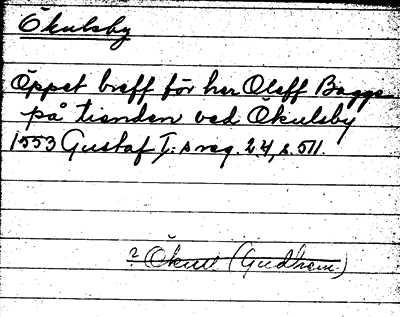 Ökulsby
Öppet breff för her Oleff Bagge
på tienden ved Ökulsby
1553 Gustaf I:s reg. 24, s. 511.
? Ökull (Gudhem)